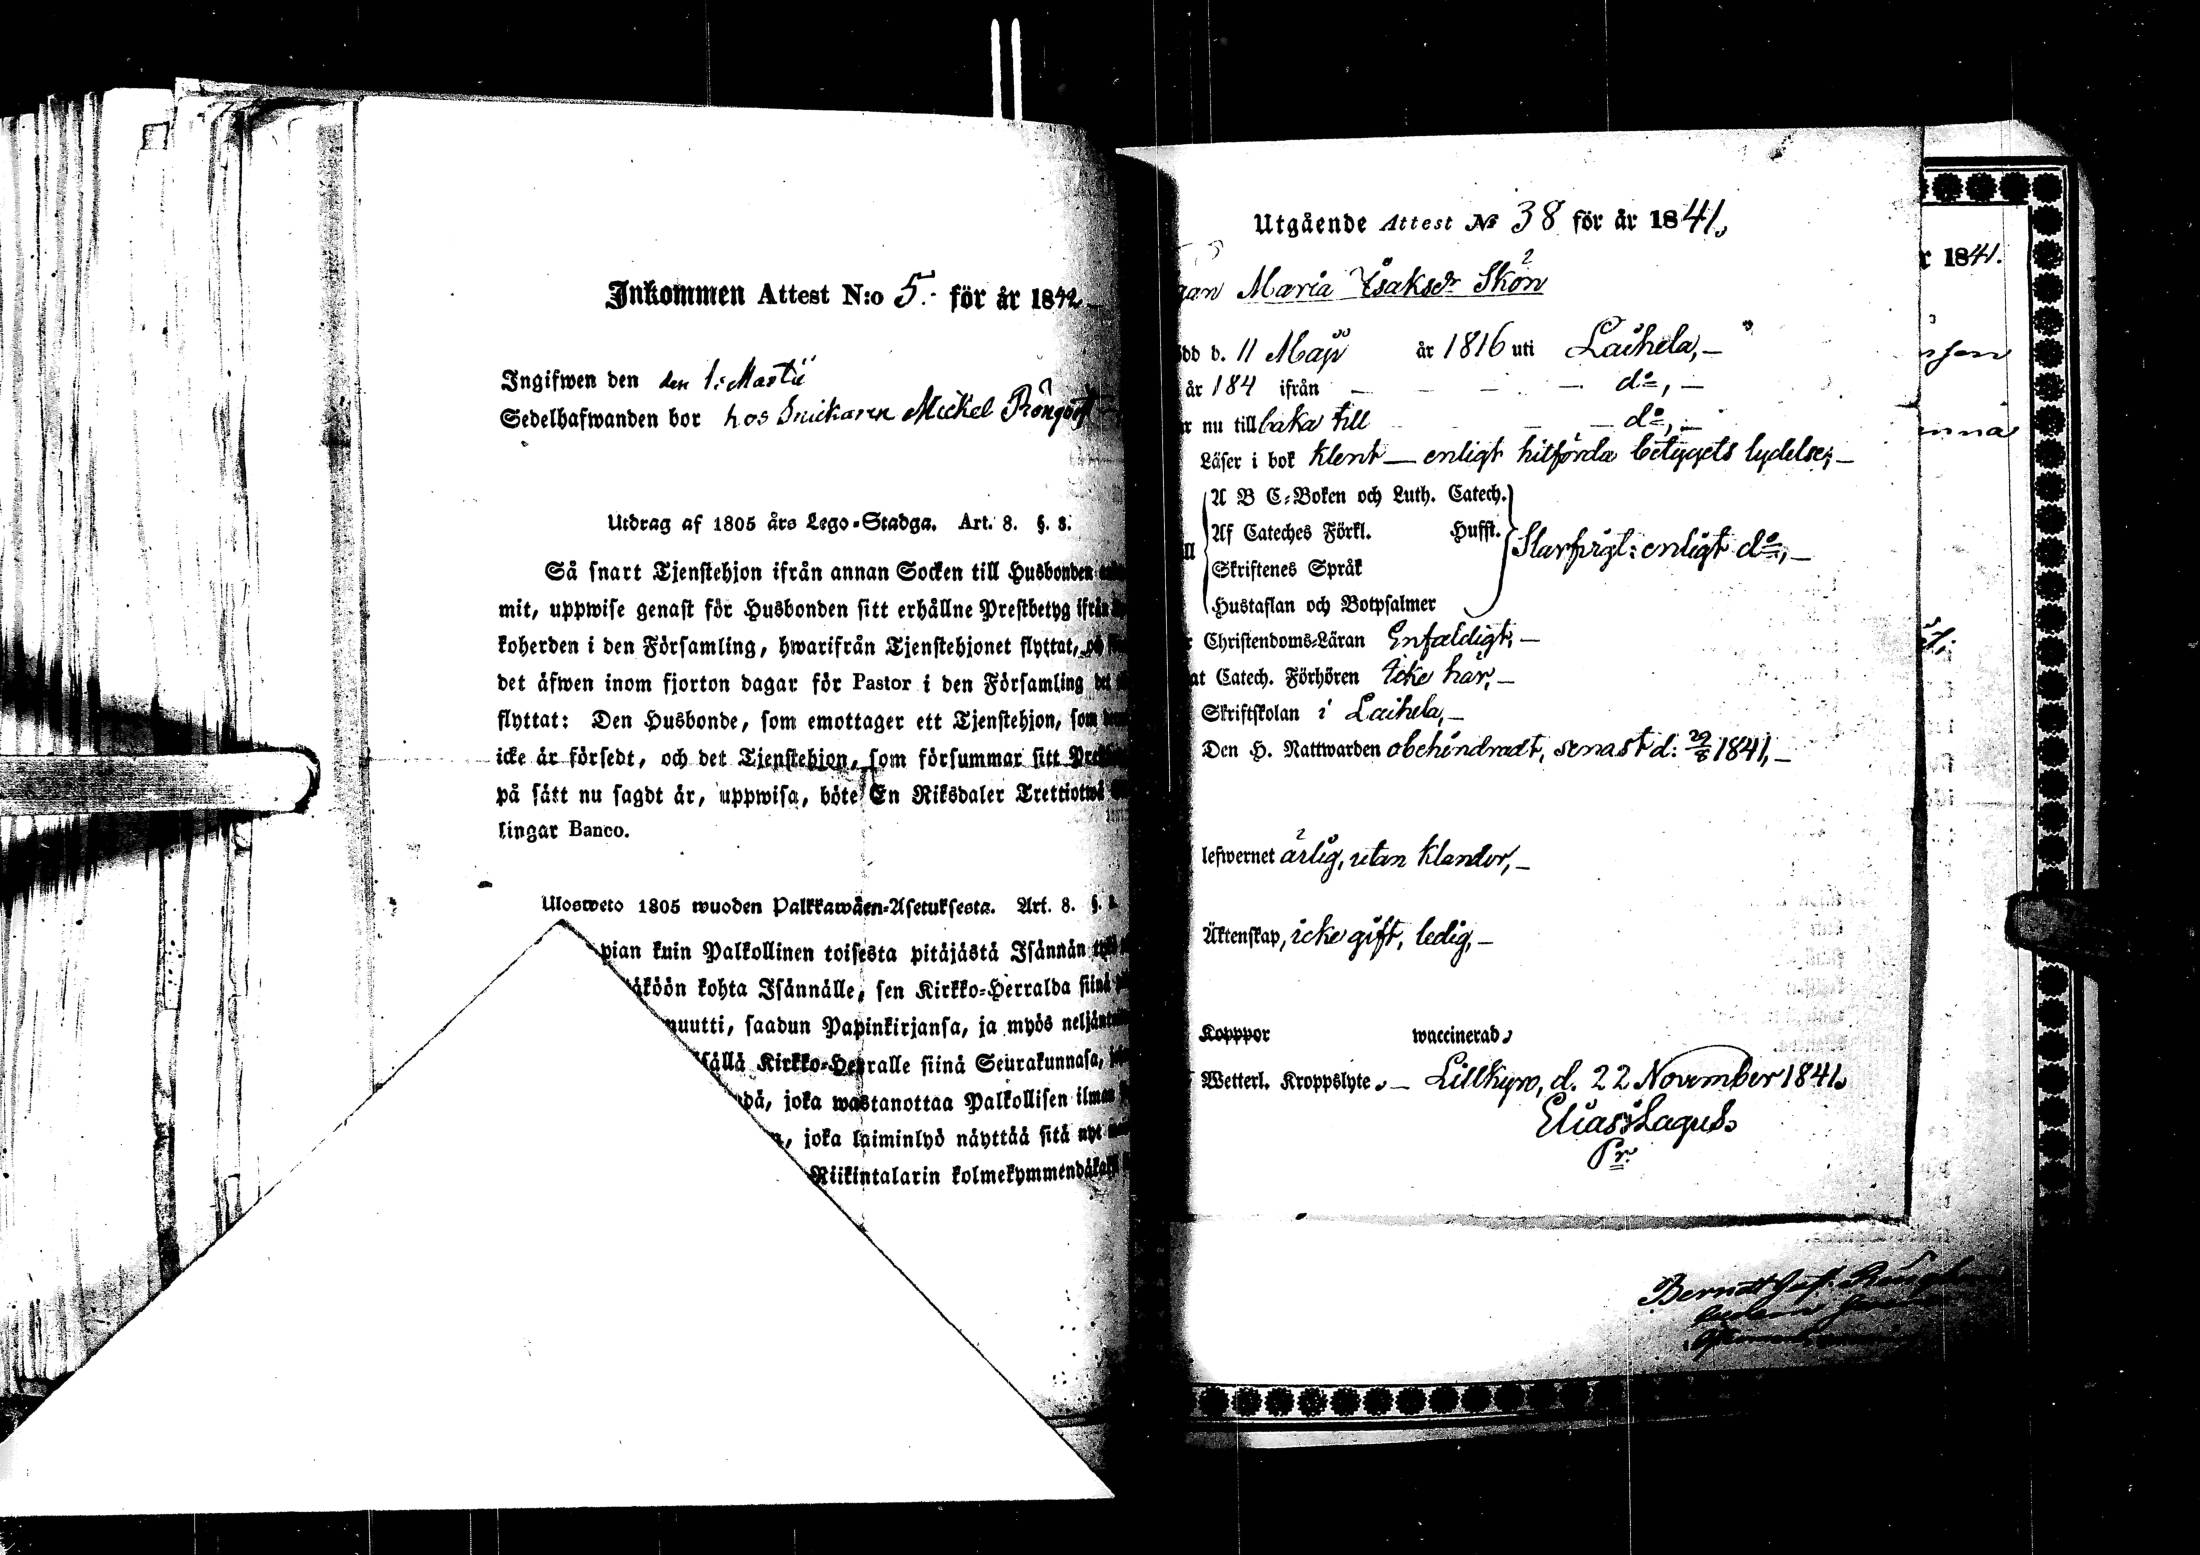 Inkommen Attest N:o 5. för år 1842
Ingifwen den den 1: Martii
Sedelhafwanden bor hos Snickaren Mickel
Utdrag af 1805 års Lego-Stadga. Art. 8. §. 8.
Så snart Tjenstehjon ifrån annan Socken till Husbonden
mit, uppwise genast för Husbonden sitt erhållne Prestbetyg ifrån
koherden i den Församling, hwarifrån Tjenstehjonet flyttat,
det äfwen inom fjorton dagar för Pastor i den Församling det
flyttat: Den Husbonde, som emottager ett Tjenstehjon, som
icke är försedt, och det Tjenstehjon, som försummar sitt
på sätt nu sagdt är, uppwisa, böte En Riksdaler Trettiotwå
lingar Banco.
Ulosweto 1805 wuoden Palkkawäen-Asetuksesta. Art. 8. §.
pian kuin Palkollinen toisesta pitäjästä Isännän
äköön kohta Isännälle, sen Kirkko-Herralda siinä
muutti, saadun Papinkirjansa, ja myös
sällä Kirkko-Herralle siinä Seurakunnasa,
dä, joka wastanottaa Palkollisen ilman
n, joka laiminlyö näyttää sitä nyt
Riikintalarin
Utgående Attest № 38 för år 1841.
gan Maria Isaksdr Skön
ödd d. 11 Maji år 1816 uti Laihela, —
år 184 ifrån — — — — do, —
r nu tillbaka till — — do, —
Läser i bok klent — enligt hitförda betygets lydelse; —
A B C-Boken och Luth. Catech.
Af Cateches Förkl. Hufst.
Skriftenes Språk
Hustaflan och Botpsalmer
enligt do, —
Christendoms-Läran Enfaldigt, —
at Catech. Förhören Icke här, —
Skriftskolan i Laihela, —
Den H. Nattwarden obehindradt, senast d: 29/8 1841, —
lefwernet ärlig, utan klander, —
Äktenskap, icke gift, ledig, —
Kopppor waccinerad.
Wetterl. Kroppslyte. — Lillkyro, d. 22 November 1841.
Elias Lagus.
Pr.
r 1841.